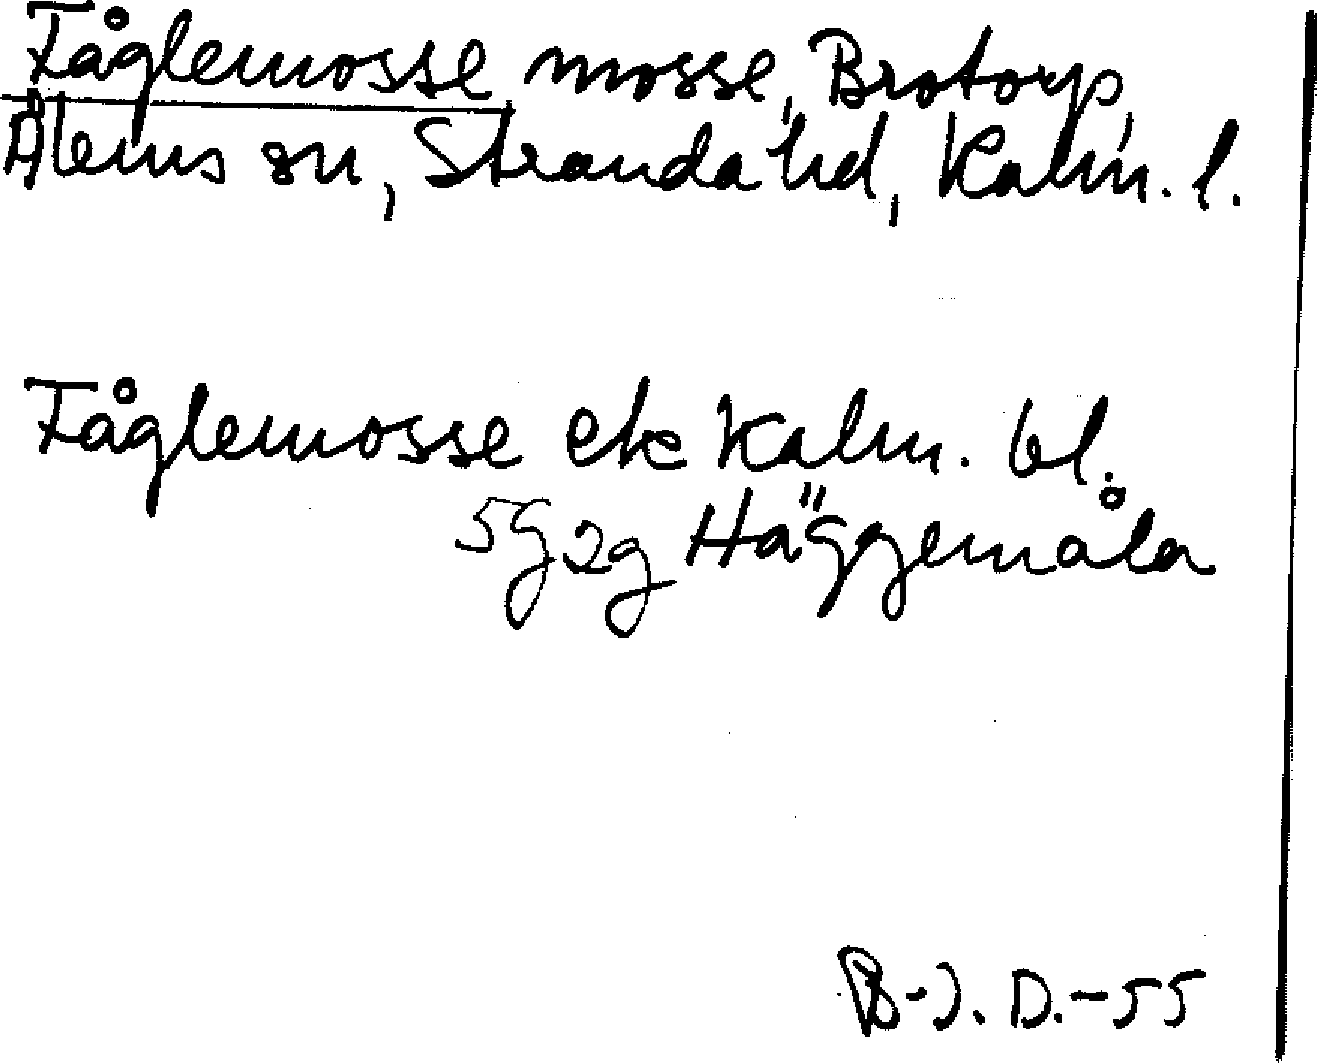 Fåglemosse mosse, Brotorp,
Ålems sn, Stranda hd, Kalm. l.
Fåglemosse ek Kalm. bl.
5g2g Häggemåla
B-J. D.-55